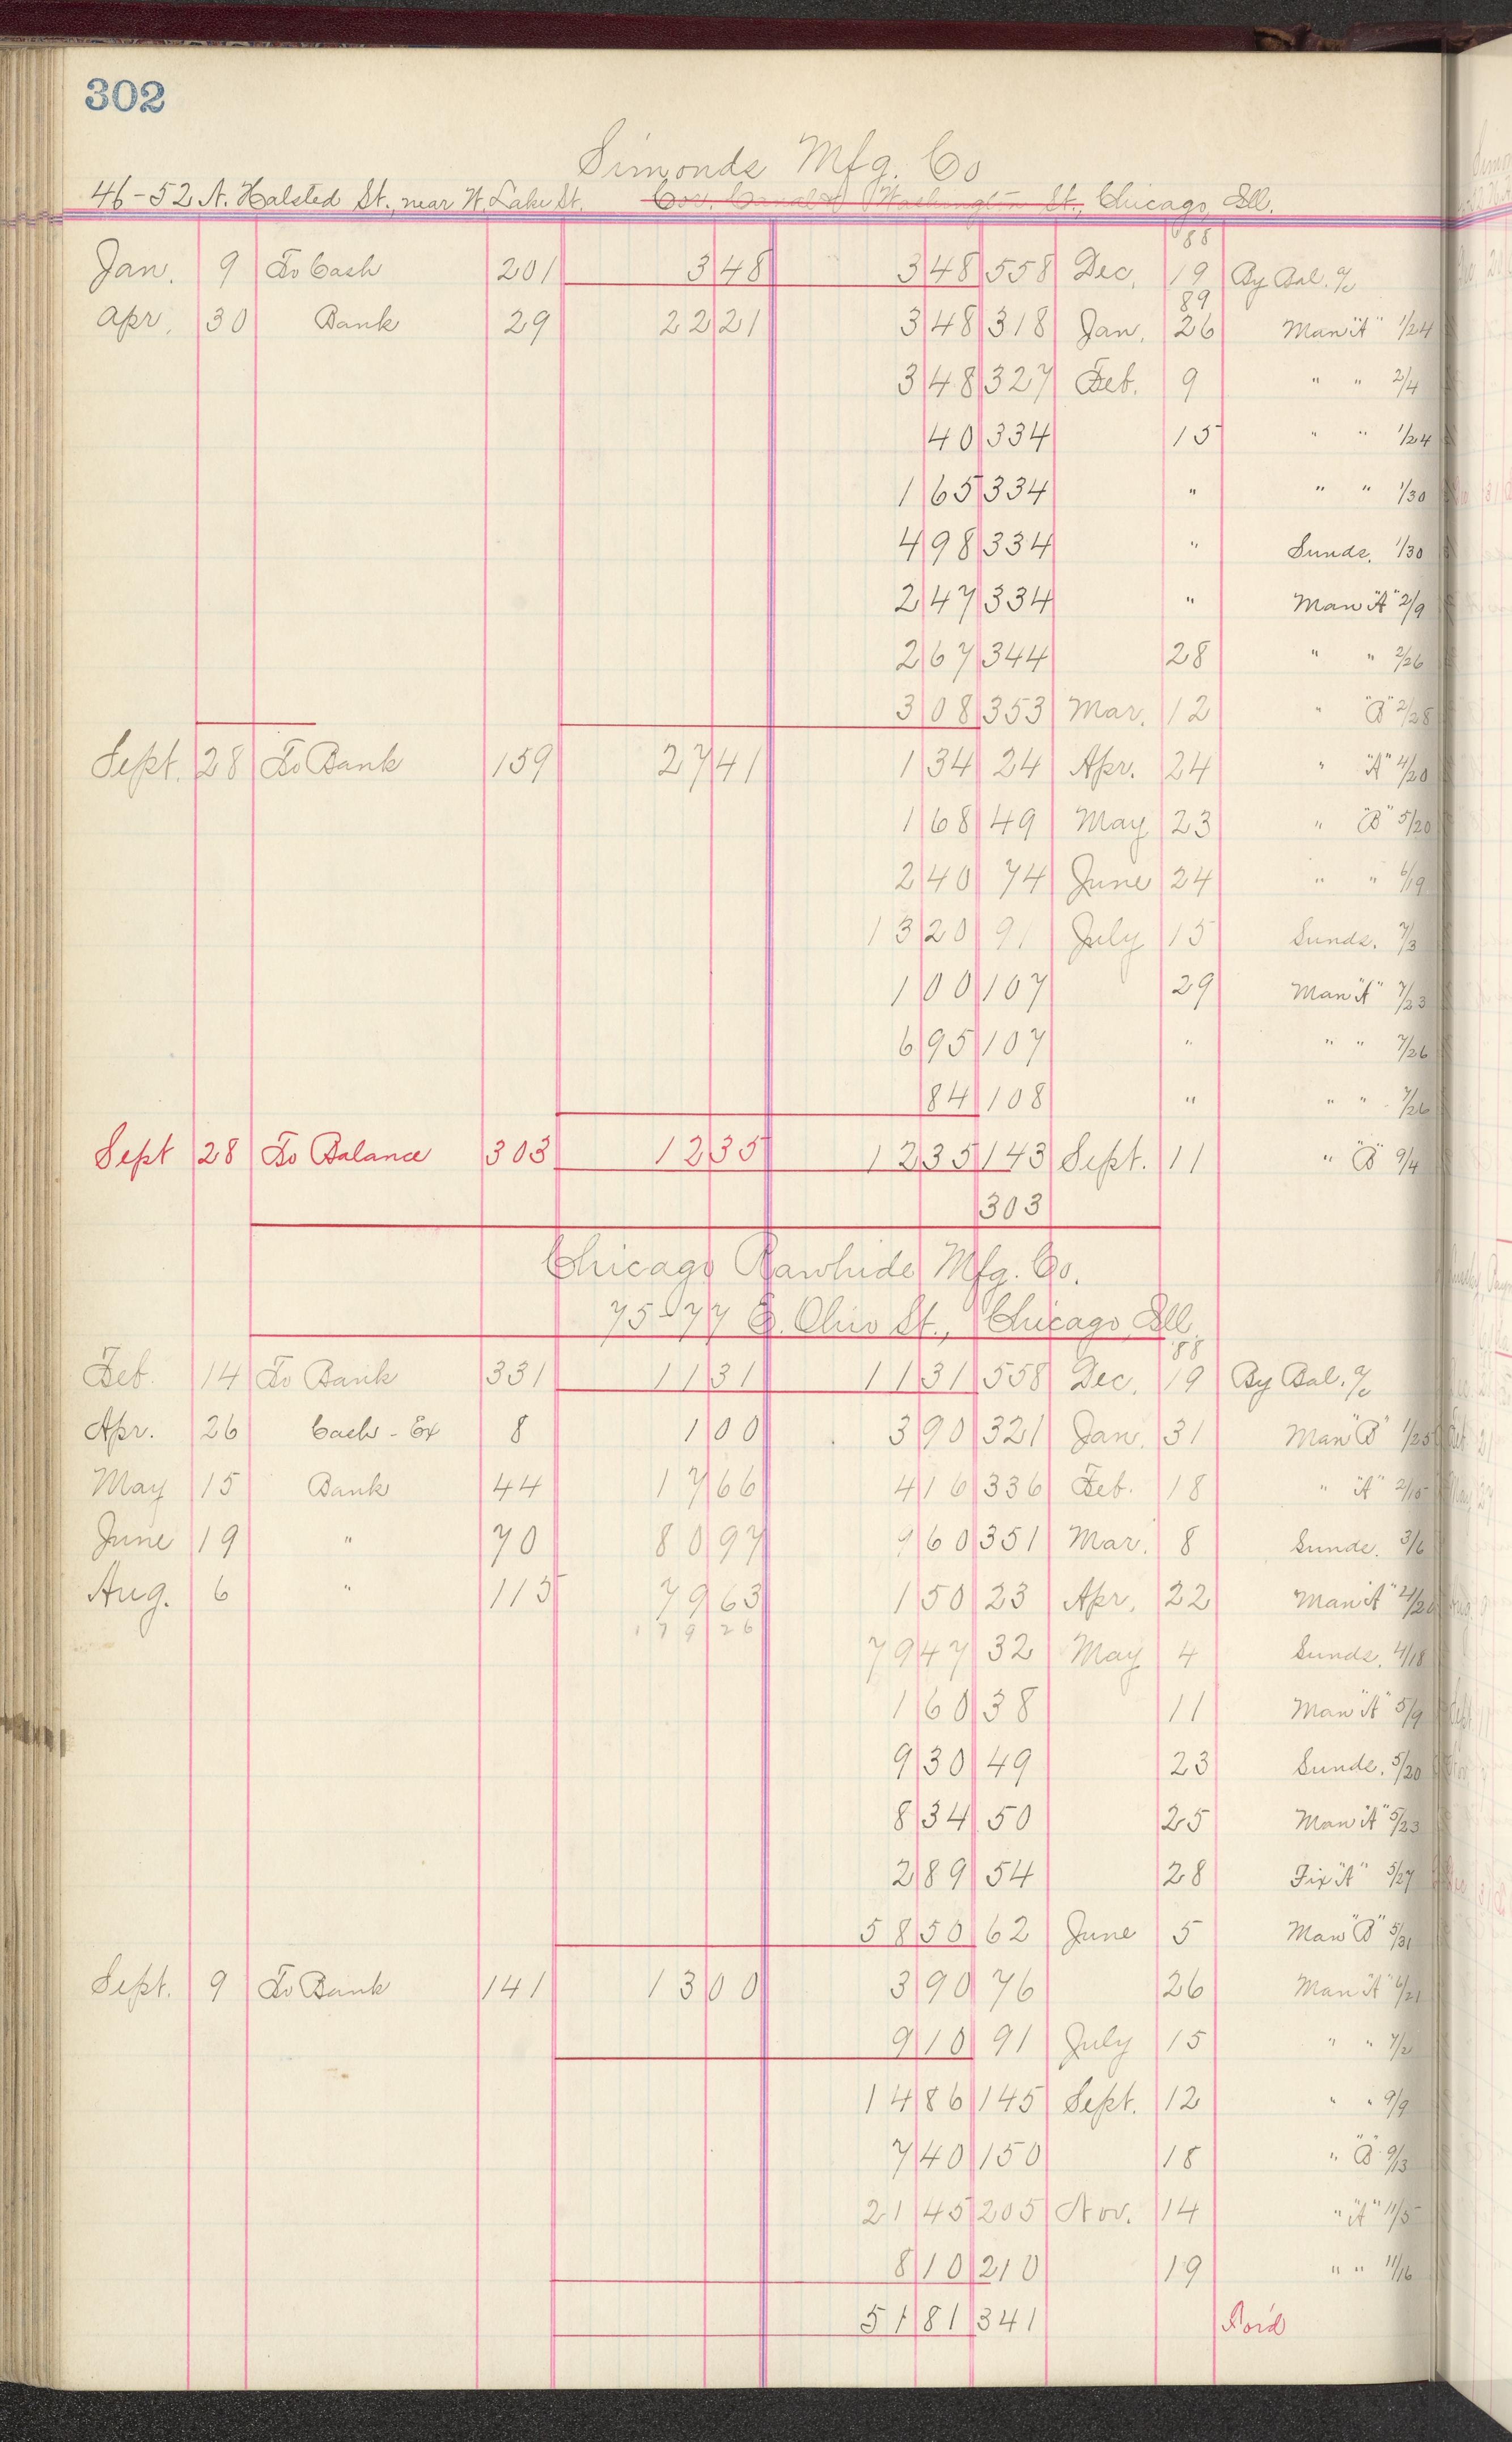 302
Simonds Mfg. Co
46-52 N. Halsted St., near W. Lake St. Cor. Canal & Washington St., Chicago, Ill.
'88
Jan. 9 To Cash 201 3 48 3 48 558 Dec. 19 By Bal. a/c
89
Apr. 30 Bank 29 22 21 3 48 318 Jan. 26 Man "A" 1/24
3 48 327 Feb. 9 " " 2/4
40 334 15 " " 1/24
1 65 334 " " " 1/30
4 98 334 " Sunds. 1/30
2 47 334 " Man "A" 2/9
2 67 344 28 " " 2/26
3 08 353 Mar. 12 " "B" 2/28
Sept. 28 To Bank 159 27 41 1 34 24 Apr. 24 " "A" 4/20
1 68 49 May 23 " "B" 5/20
2 40 74 June 24 " " 6/19
13 20 91 July 15 Sunds. 7/3
1 00 107 29 Man "A" 7/23
6 95 107 " " " 7/26
84 108 " " " 7/26
Sept 28 To Balance 303 12 35 12 35 143 Sept. 11 " "B" 9/4
303
Chicago Rawhide Mfg. Co.
75-77 E. Ohio St., Chicago Ill.
'88
Feb. 14 To Bank 331 11 31 11 31 558 Dec. 19 By Bal. a/c
Apr. 26 Cash - Ex 8 1 00 3 90 321 Jan. 31 Man "B" 1/25
May 15 Bank 44 17 66 4 16 336 Feb. 18 " "A" 2/15
June 19 " 70 80 97 9 60 351 Mar. 8 Sunds. 3/6
Aug. 6 " 113 79 63 1 50 23 Apr. 22 Man "A" 4/20
179 26
79 47 32 May 4 Sunds. 4/18
1 60 38 11 Man "A" 5/9
9 30 49 23 Sunds. 5/20
8 34 50 25 Man "A" 5/23
2 89 54 28 Fix "A" 5/27
58 50 62 June 5 Man "B" 5/31
Sept. 9 To Bank 141 13 00 3 90 76 26 Man "A" 6/21
9 10 91 July 15 " " 7/2
14 86 145 Sept. 12 " " 9/9
7 40 150 18 " "B" 9/13
21 45 205 Nov. 14 " "A" 11/5
8 10 210 19 " " 11/16
51 81 341 For'd